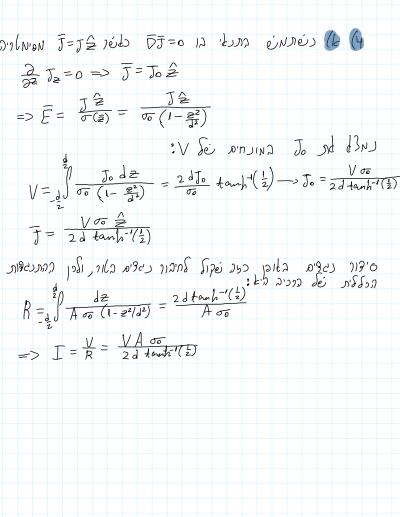 4) א) נשתמש בתנאי בו ∇·J̄ = 0 כאשר J̄ = J ẑ מסימטריה
∂/∂z J_z = 0 => J̄ = J₀ ẑ
=> Ē = J ẑ / σ(z) = J ẑ / (σ₀ (1 - z²/d²))
נמצא את J₀ במונחים של V:
V = ∫_{-d/2}^{d/2} J₀ dz / (σ₀ (1 - z²/d²)) = (2dJ₀/σ₀) tanh⁻¹(1/2) → J₀ = Vσ₀ / (2d tanh⁻¹(1/2))
J̄ = Vσ₀ ẑ / (2d tanh⁻¹(1/2))
סידור נגדים באופן כזה שקול לחיבור נגדים בטור, ולכן ההתנגדות
הכללית של הרכיב היא:
R = ∫_{-d/2}^{d/2} dz / (Aσ₀ (1 - z²/d²)) = 2d tanh⁻¹(1/2) / (Aσ₀)
=> I = V/R = VAσ₀ / (2d tanh⁻¹(1/2))